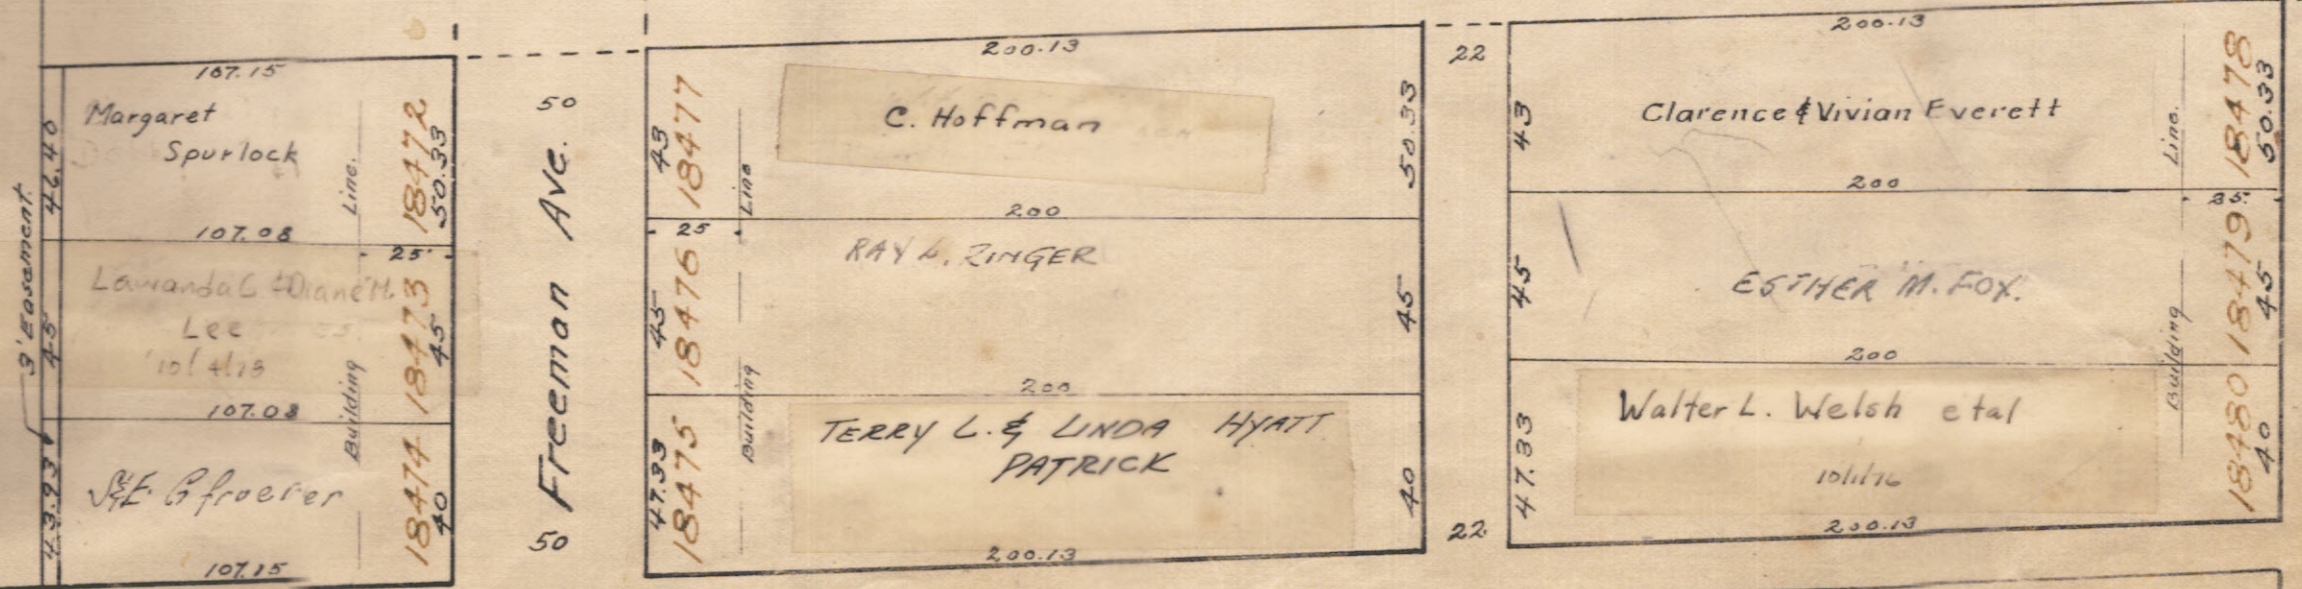 3' Easement.
107.15
Margaret
Spurlock
46.40
Line.
18472
50.33
107.08
25'
Lawanda C. & Diane M.
Lee
10/4/78
45
Building
18473
45
107.08
43.93
18474
40
107.15
50
Freeman Ave.
50
200.13
43
18477
C. Hoffman
Line
50.33
200
25
45
18476
RAY L. ZINGER
45
Building
200
47.33
18475
TERRY L. & LINDA HYATT
PATRICK
40
200.13
22
22
200.13
43
Clarence & Vivian Everett
Line.
18478
50.33
200
25.
45
ESTHER M. FOX.
18479
45
Building
200
47.33
Walter L. Welsh et al
10/1/76
18480
40
200.13